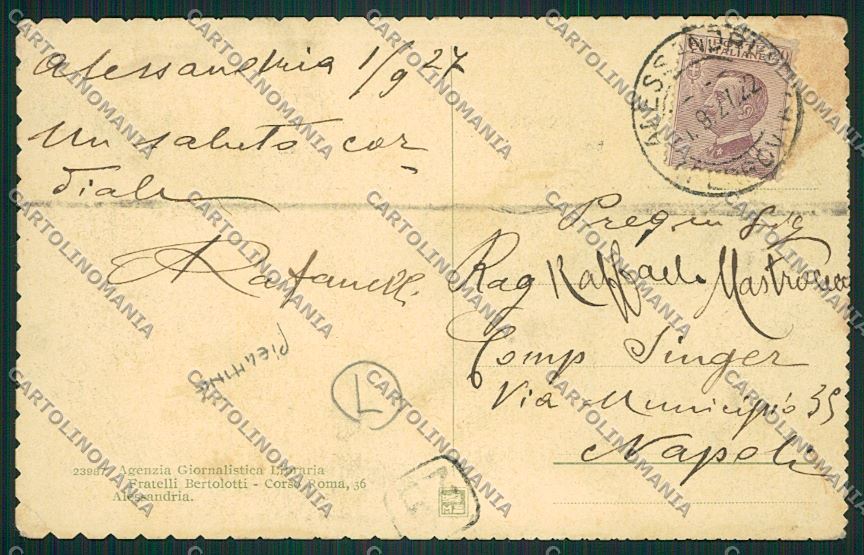 Alessandria 1/9 27
Un saluto cor-
diale
Rafanelli
Preg mo Sig
Rag Raffaele
Comp Singer
Via Municipio 35
Napoli
L
23987 Agenzia Giornalistica Libraria
Fratelli Bertolotti - Corso Roma, 36
Alessandria.
CARTOLINOMANIA